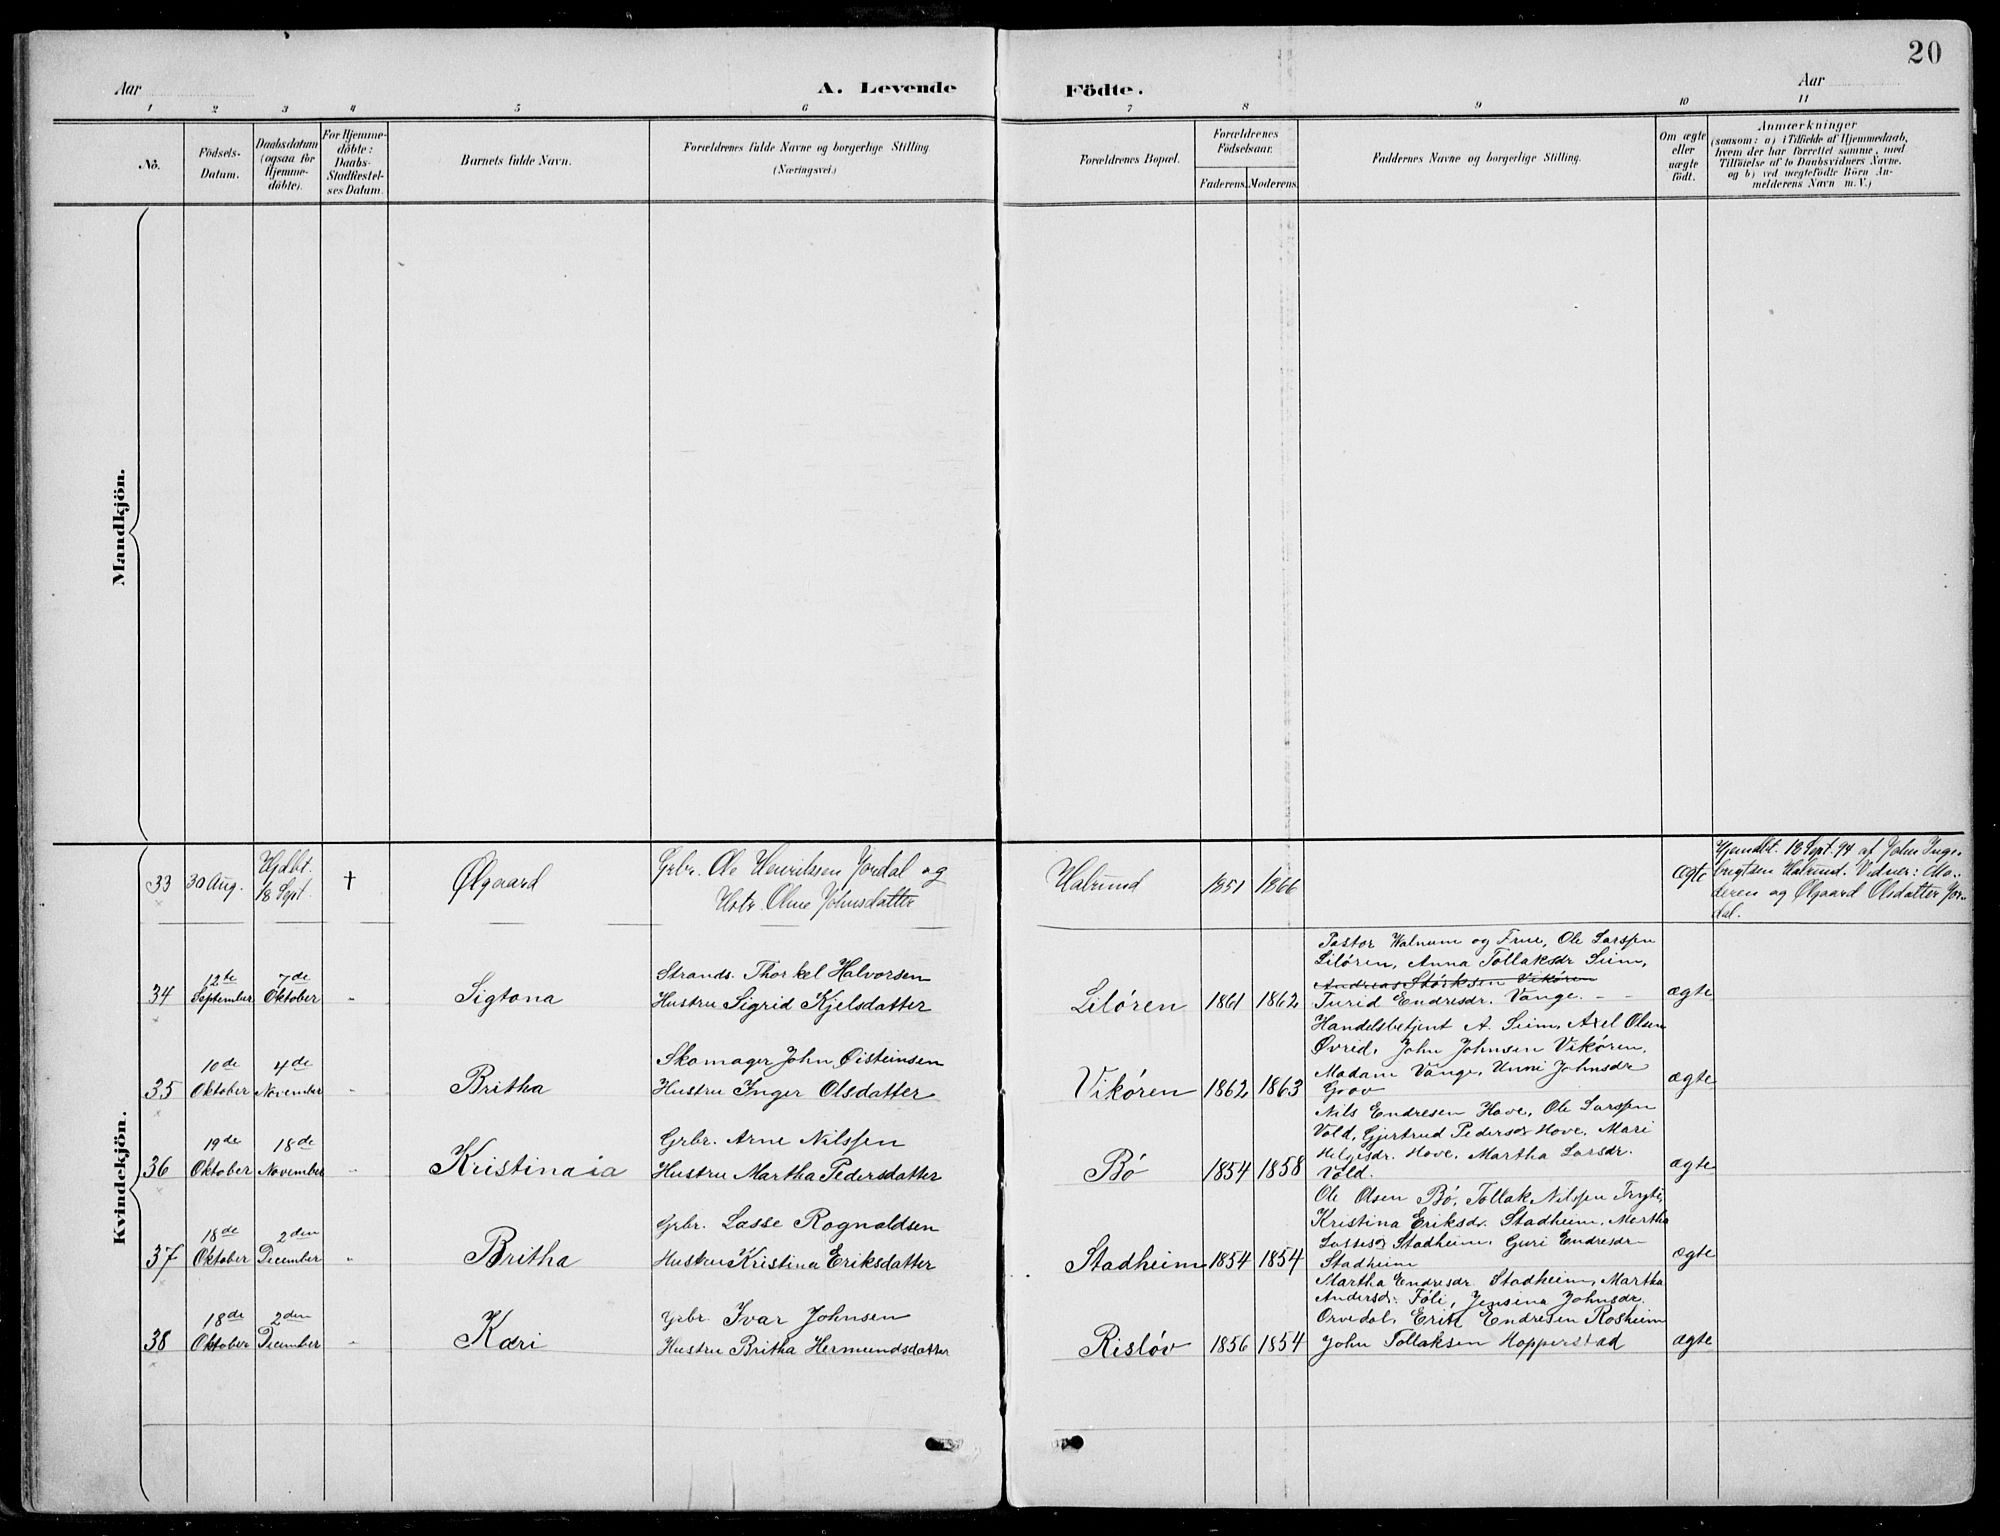 20
Aar
A. Levende
Födte.
Aar
1 2 3 4 5 6 7 8 9 10 11
No.
Födsels-
Datum.
Daabsdatum
(ogsaa for
Hjemme-
döbte).
For Hjemme-
döbte:
Daabs-
Stadfestel-
ses Datum.
Barnets fulde Navn.
Forældrenes fulde Navne og borgerlige Stilling
(Næringsvei.)
Forældrenes Bopæl.
Forældrenes
Födselsaar.
Faderens. Moderens.
Faddernes Navne og borgerlige Stilling.
Om ægte
eller
uægte
födt.
Anmærkninger
(saasom: a) i Tilfælde af Hjemmedaab,
hvem der har forrettet samme, med
Tilföielse af to Daabsvidners Navne.
og b) ved uægtefödte Börn An-
melderens Navn m. V.)
Mandkjön.
Kvindekjön.
33 30 Aug. Hjdbt. 18 Sept. † Ølgaard
Grbr. Ole Henrikssen Jordal og
Hstr. Oline Johnsdatter
Halrund 1851 1866 ægte
Hjemdbt. 18 Sept. 94 af John Inge-
brigtsen Halrund. Vidner: Mo-
deren og Ølgaard Olsdatter Jor-
dal.
34 12te September 7de Oktober - Sigtona
Strands. Thorkel Halvorsen
Hustru Sigrid Kjelsdatter
Liløren 1861 1862
Pastor Walnum og Frue, Ole Larssen
Liløren, Anna Tollaksdr Seim,
Andreas Størksen Vikøren
Turid Endresdr. Vange. - -
ægte
35 10de Oktober 4de November - Britha
Skomager John Øisteinsen
Hustru Inger Olsdatter
Vikøren 1862 1863
Handelsbetjent A. Seim, Axel Olsen
Øvrid, John Johnsen Vikøren,
Madam Vange, Unni Johnsdr
Grov
ægte
36 19de Oktober 18de November - Kristinaia
Grbr. Arne Nilssen
Hustru Martha Pedersdatter
Bø 1854 1858
Nils Endresen Hove, Ole Larssen
Vold, Gjertrud Pedersdr Hove, Mari
Helgesdr. Hove, Martha Larsdr.
Vold.
ægte
37 18de Oktober 2den December - Britha
Grbr. Lasse Rognaldsen
Hustru Kristina Eriksdatter
Stadheim 1854 1854
Ole Olsen Bø, Tollak Nilssen Tryti,
Kristina Eriksdr. Stadheim, Martha
Lassesdr Stadheim, Guri Endresdr
Stadheim
ægte
38 18de Oktober 2den December - Kari
Grbr. Ivar Johnsen
Hustru Britha Hermundsdatter
Risløv 1856 1854
Martha Endresdr. Stadheim, Martha
Andersdr. Føli, Jensina Johnsdr.
Orvedal, Erik Endresen Rosheim
John Tollaksen Hopperstad
ægte